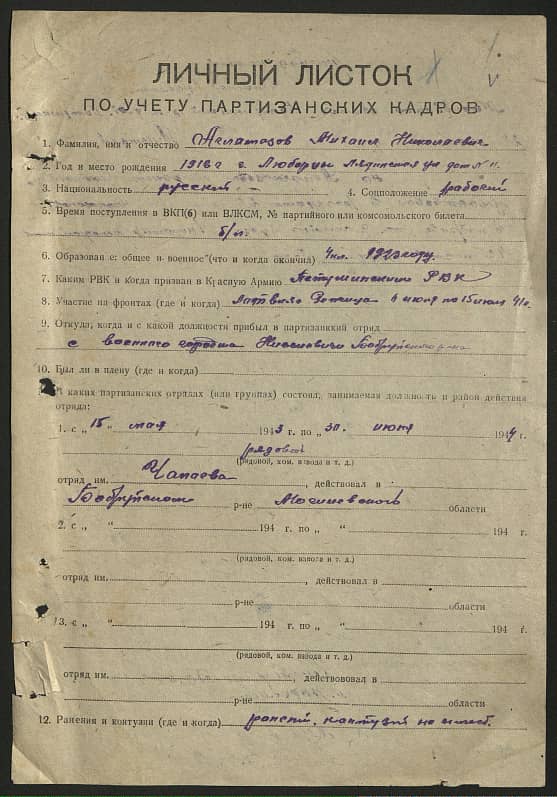 ЛИЧНЫЙ ЛИСТОК
ПО УЧЕТУ ПАРТИЗАНСКИХ КАДРОВ
1. Фамилия, имя и отчество Михаил Николаевич
2. Год и место рождения 1918 г г. Люберцы
3. Национальность русский 4. Соцположение рабочий
5. Время поступления в ВКП(б) или ВЛКСМ, № партийного или комсомольского билета
б/п.
6. Образован е: общее и военное (что и когда окончил) 4 кл.
7. Каким РВК и когда призван в Красную Армию Петушинским РВК
8. Участие на фронтах (где и когда) июня по 15 июля 41 г.
9. Откуда, когда и с какой должности прибыл в партизанский отряд
с военного городка Киселевичи Бобруйского р-на
10. Был ли в плену (где и когда)
В каких партизанских отрядах (или группах) состоял, занимаемая должность и район действия
отряда:
1. с „ 15 “ мая 1943 г. по „ 30 “ июня 1944 г.
рядовой
(рядовой, ком. взвода и т. д.)
отряд им. Чапаева, действовал в
Бобруйском р-не Могилевской области
2. с „ “ 194 г. по „ “ 194 г.
(рядовой, ком. взвода и т. д.)
отряд им. , действовал в
р-не области
3. с „ “ 194 г. по „ “ 194 г.
(рядовой, ком. взвода и т. д.)
отряд им. , действововал в
р-не области
12. Ранения и контузии (где и когда) ранений, контузий не имеет.